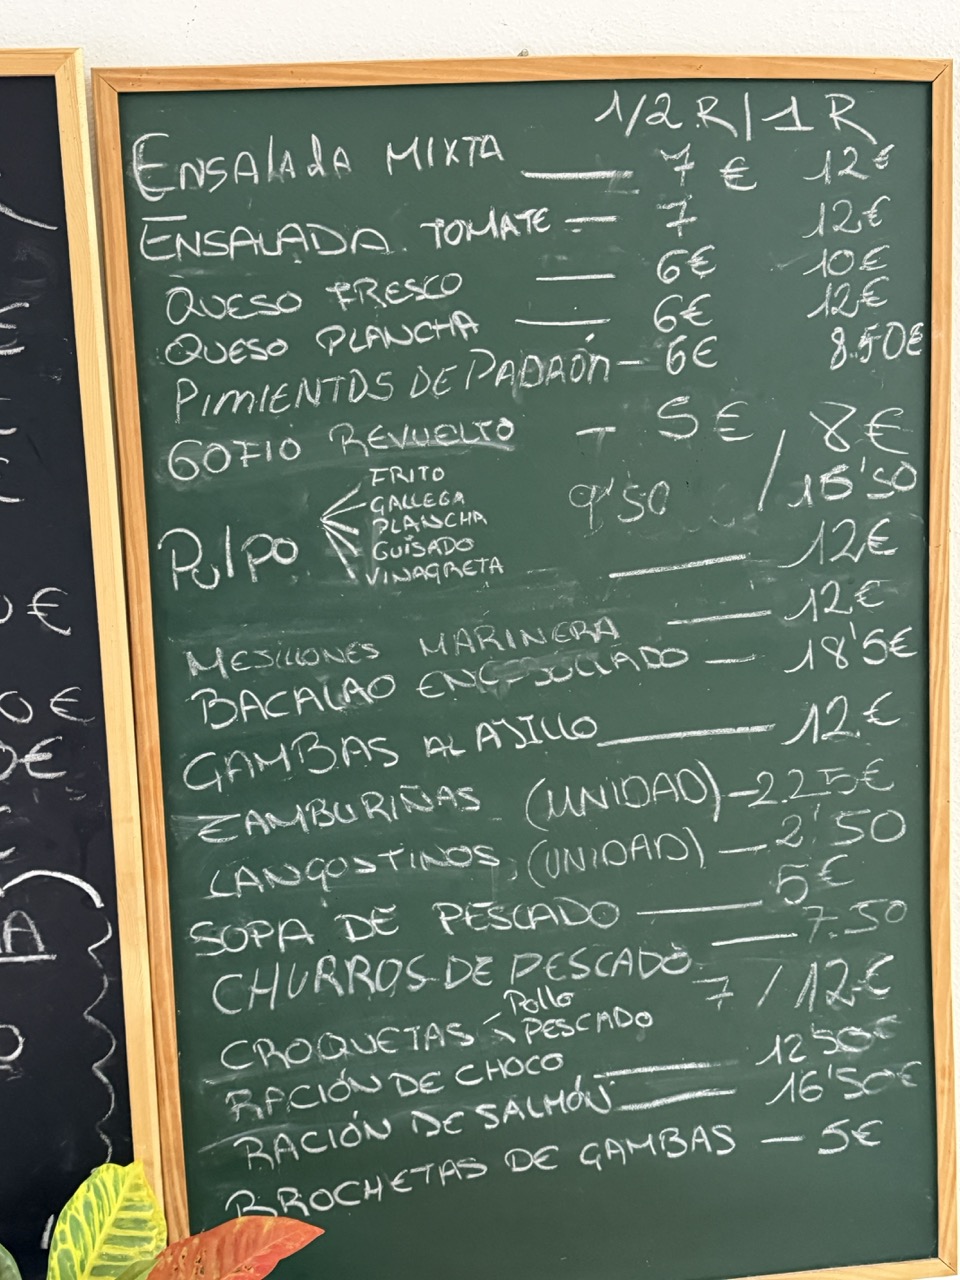 1/2 R | 1 R
ENSALADA MIXTA — 7 € 12€
ENSALADA TOMATE — 7 12€
QUESO FRESCO — 6€ 10€
QUESO PLANCHA — 6€ 12€
PIMIENTOS DE PADRÓN — 6€ 8.50€
GOFIO REVUELTO — 5€ / 8€
PULPO 9'50 / 16'50
FRITO
GALLEGA
PLANCHA
GUISADO
VINAGRETA — 12€
MESILLONES MARINERA — 12€
BACALAO — 18'5€
GAMBAS AL AJILLO — 12€
ZAMBURIÑAS (UNIDAD) — 2.25€
LANGOSTINOS (UNIDAD) — 2'50
SOPA DE PESCADO — 5€
CHURROS DE PESCADO — 7.50
CROQUETAS 7 / 12€
Pollo
PESCADO
RACIÓN DE CHOCO — 12'50€
RACIÓN DE SALMÓN — 16'50€
BROCHETAS DE GAMBAS — 5€